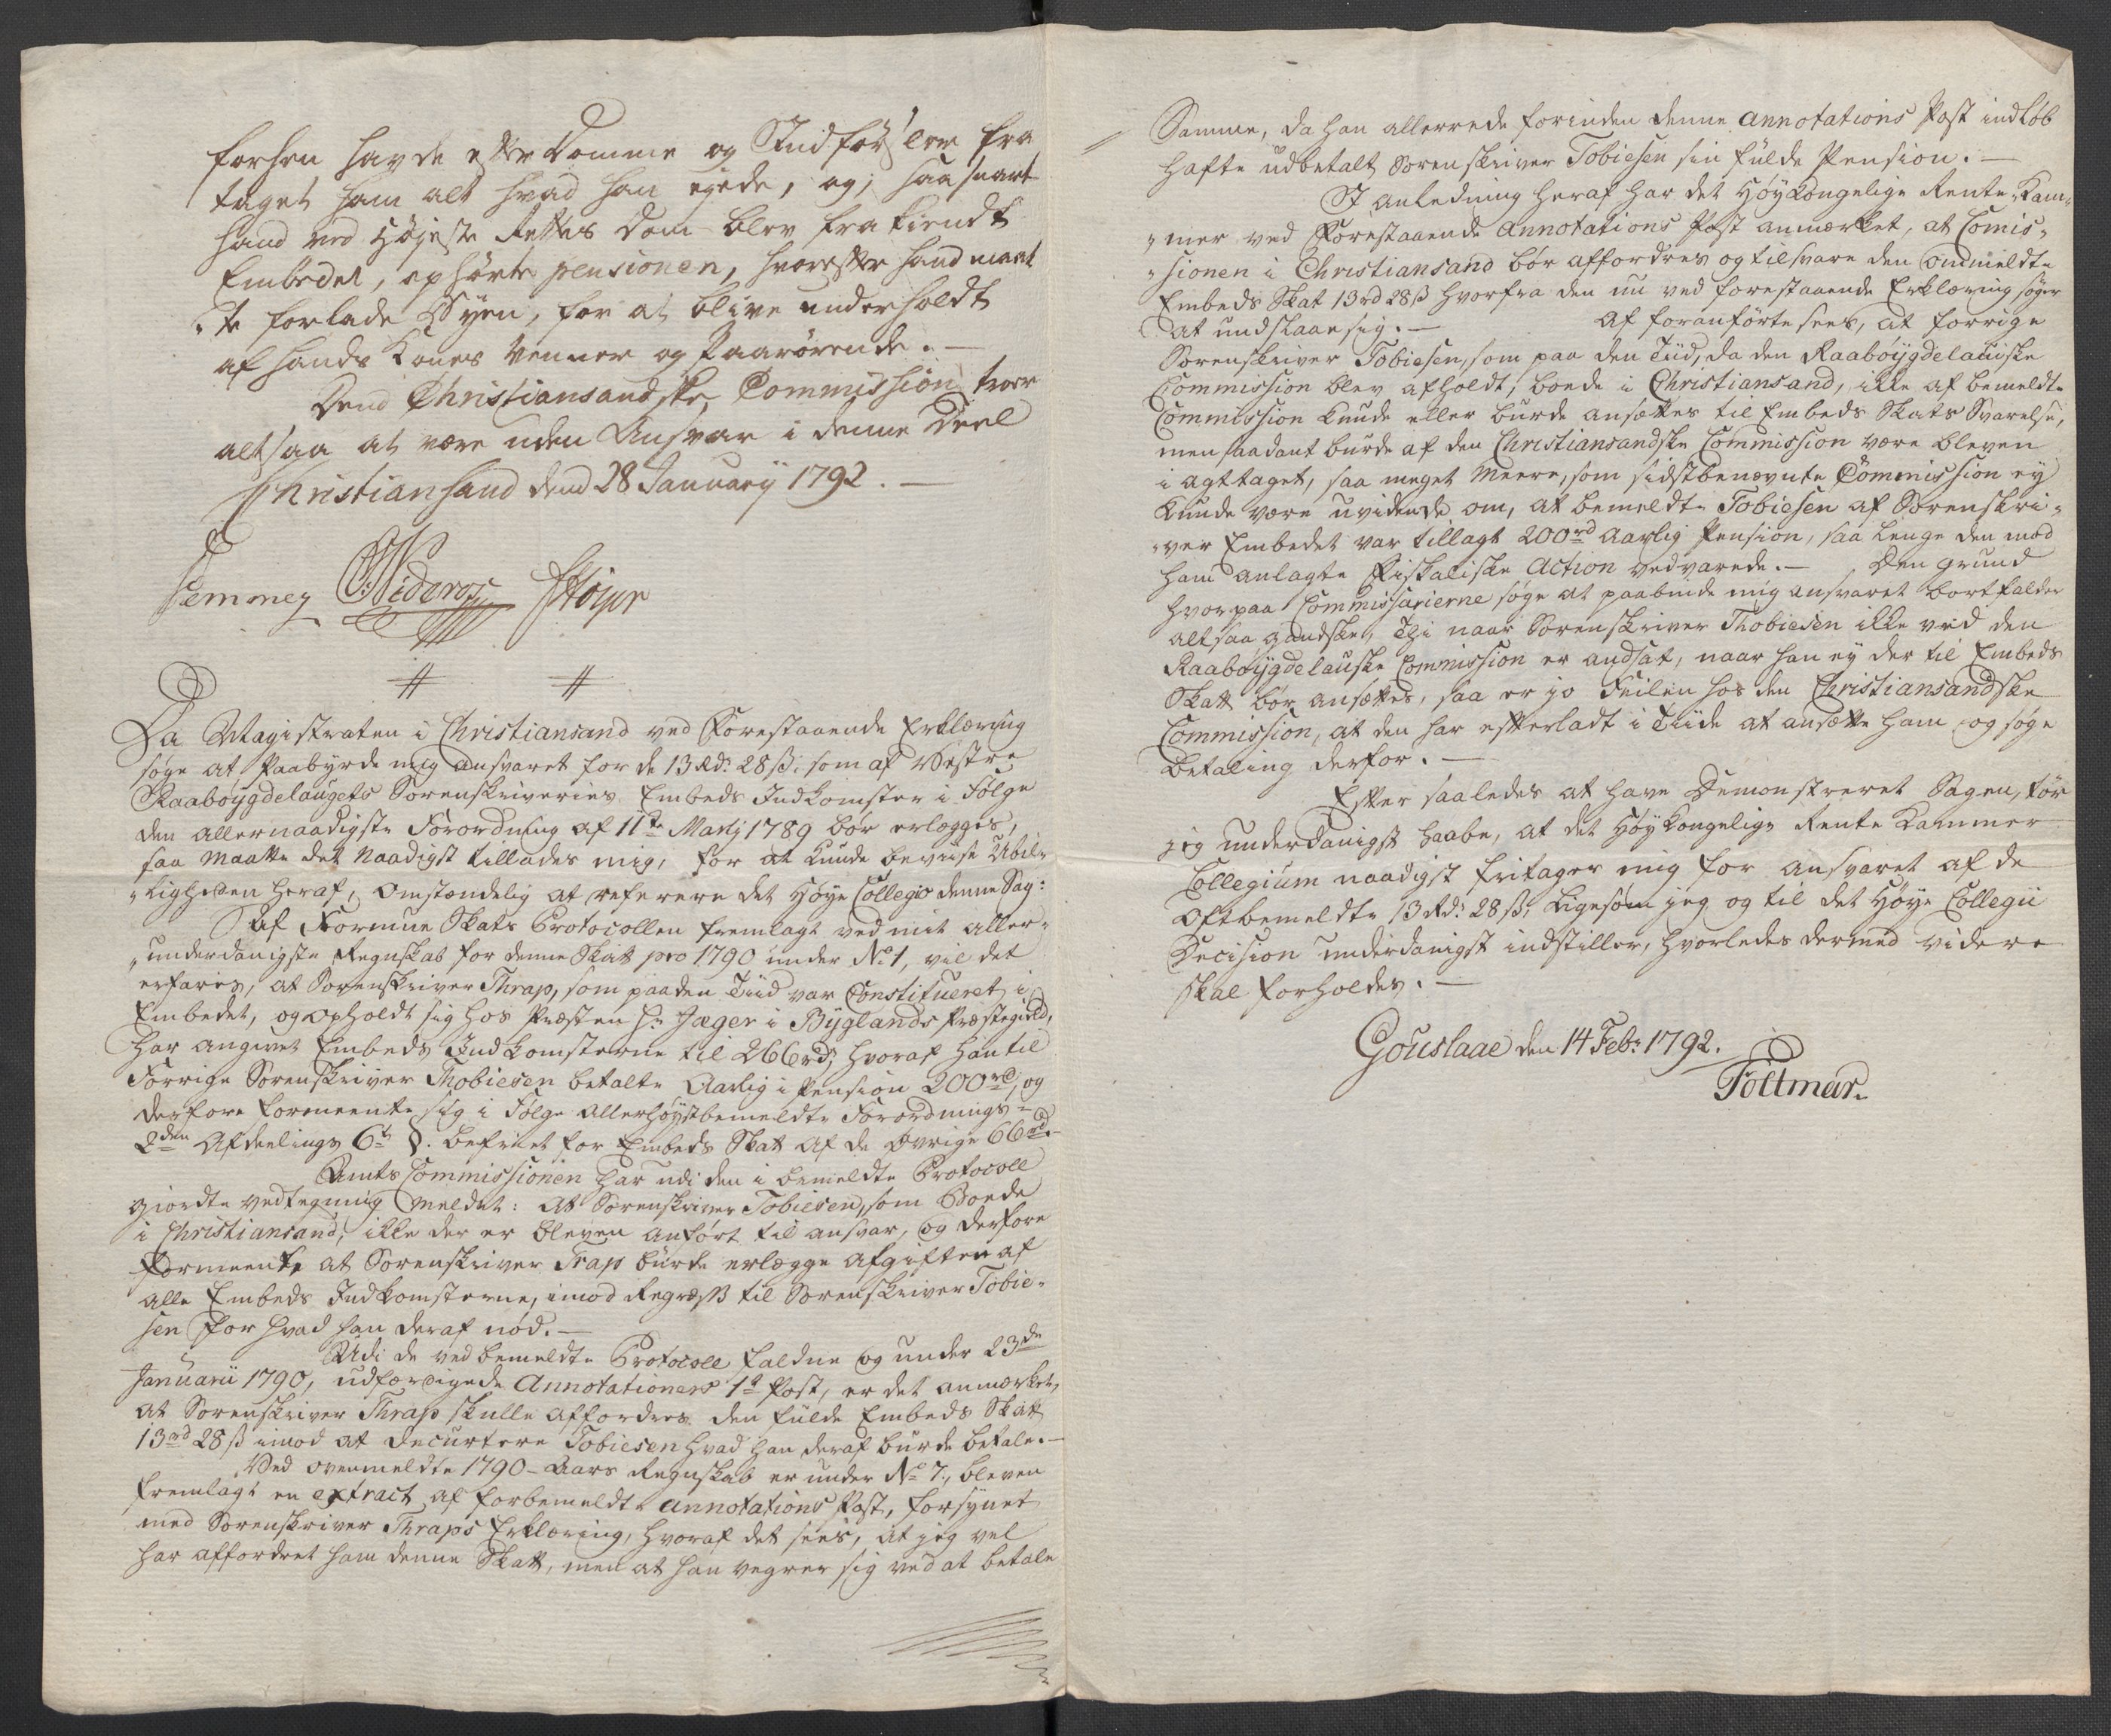 forhen havde efter Domme og Indførsler fra
taget ham alt hvad han eyede, og, saasnart
hand ved Højeste Rettes Dom blev frakiendt
Embedet, ophørte pensionen, hvorefter hand maat
te forlade Byen, for at blive underholdt
af hands Kones Venner og Paarørende. —
Dend Christiansandske Commission troer
altsaa at være uden Ansvar i denne Deel
Christiansand dend 28 January 1792. —
Nideros
Da Magistraten i Christiansand ved Forestaaende Erklæring
søge at Paabyrde mig ansvaret for de 13 Rd: 28 ß, som af Westre
Raaboÿgdelaugets Sorenskriveries Embeds Indkomster i Følge
den allernaadigste Forordning af 11te Martj 1789 bør erlægges,
saa maatte det naadigst tillades mig, for at kunde beviise Ubil-
„ligheden heraf, omstændelig at referere det Høye Collegio denne Sag:
Af Formue Skats Protocollen fremlagt ved mit aller-
„underdanigste Regnskab for denne Skat pro 1790 under No 1, vil det
erfares, at Sorenskriver Thrap, som paa den Tiid var Constitueret i
Embedet, og opholdt sig hos Præsten Hr. Jæger i Byglands Præstegield,
har angivet Embeds Indkomsterne til 266 rd, hvoraf han til
Forrige Sorenskriver Thobiesen betalte Aarlig i Pension 200 rd, og
derfore formeente sig i Følge allerhøystbemeldte Forordnings
2den Afdeelings 6te §. befriet for Embeds Skat af de øvrige 66 rd. —
Amts Commissionen har udi den i bemeldte Protocoll
giordte vedtegning meldet: at Sorenskriver Tobiesen, som Boede
i Christiansand, ikke der er bleven anført til ansvar, og derfore
formeente at Sorenskriver Trap burde erlægge afgiften af
alle Embeds Indkomsterne, imod Regress til Sorenskriver Tobie-
sen for hvad han deraf nød. —
Udi de ved bemeldte Protocoll faldne og under 23de
Januarii 1790, udfærdigede Annotationers 1te Post, er det anmærket,
at Sorenskriver Thrap skulle affordres den fulde Embeds Skat
13 rd 28 ß imod at decurtere Tobiesen hvad han deraf burde betale. —
Ved ovenmeldte 1790 – Aars Regnskab er under No 7, bleven
fremlagt en extract af forbemeldte annotations Post, forsynet
med Sorenskriver Thraps Erklæring, hvoraf det sees, at jeg vel
har affordret ham denne Skatt, men at han vegrer sig ved at betale
Samme, da han allerrede forinden denne annotations Post indløb
hafte udbetalt Sorenskriver Tobiesen sin fulde Pension. —
I anledning heraf har det Høykongelige Rente-Kam-
„mer ved Forestaaende Annotations Post anmærket, at Comis-
„sionen i Christiansand bør affordres og tilsvare den ommeldte
Embeds Skat 13 rd 28 ß hvorfra den nu ved forestaaende Erklæring søger
at undslaae sig. — Af foranførte sees, at forrige
Sorenskriver Tobiesen, som paa den Tiid, da den Raaboÿgdelauiske
Commission blev afholdt, boede i Christiansand, ikke af bemeldte
Commission kunde eller burde ansættes til Embeds Skats Svarelse,
men saadant burde af den Christiansandske Commission være bleven
i agttaget, saa meget meere, som sidstbenævnte Commission ey
kunde være uvidende om, at bemeldte Tobiesen af Sorenskri-
„ver Embedet var tillagt 200 rd Aarlig Pension, saa lenge den mod
ham anlagte Fiskaliske Action vedvarede. — Den grund
hvorpaa Commissarierne søge at paabinde mig ansvaret bortfalder
altsaa gandske, Thi naar Sorenskriver Thobiesen ikke ved den
Raaboÿgdelauske Commission er andsat, naar han ey der til Embeds
Skatt bør ansættes, saa er jo Feilen hos den Christiansandske
Commission, at den har efterladt i Tiide at ansætte ham og søge
betaling derfor. —
Efter saaledes at have Demonstreret Sagen, tør
jeg underdanigst haabe, at det Høykongelige Rente Kammer
Collegium naadigst fritager mig for ansvaret af de
oftbemeldte 13 Rd: 28 ß, ligesom jeg og til det Høye Collegii
Decision underdanigst indstiller, hvorledes dermed videre
skal forholdes. —
Gouslaae den 14 Febr 1792.
Tottmar.